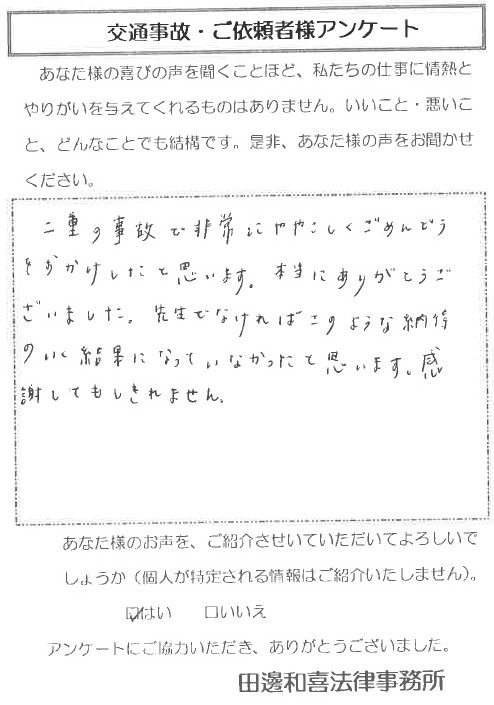 交通事故・ご依頼者様アンケート
あなた様の喜びの声を聞くことほど、私たちの仕事に情熱と
やりがいを与えてくれるものはありません。いいこと・悪いこ
と、どんなことでも結構です。是非、あなた様の声をお聞かせ
ください。
二重の事故で非常にややこしくごめんどう
をおかけしたと思います。本当にありがとうご
ざいました。先生でなければこのような納得
のいく結果になっていなかったと思います。感
謝してもしきれません。
あなた様のお声を、ご紹介させいていただいてよろしいで
しょうか（個人が特定される情報はご紹介いたしません）。
☑はい　□いいえ
アンケートにご協力いただき、ありがとうございました。
田邊和喜法律事務所